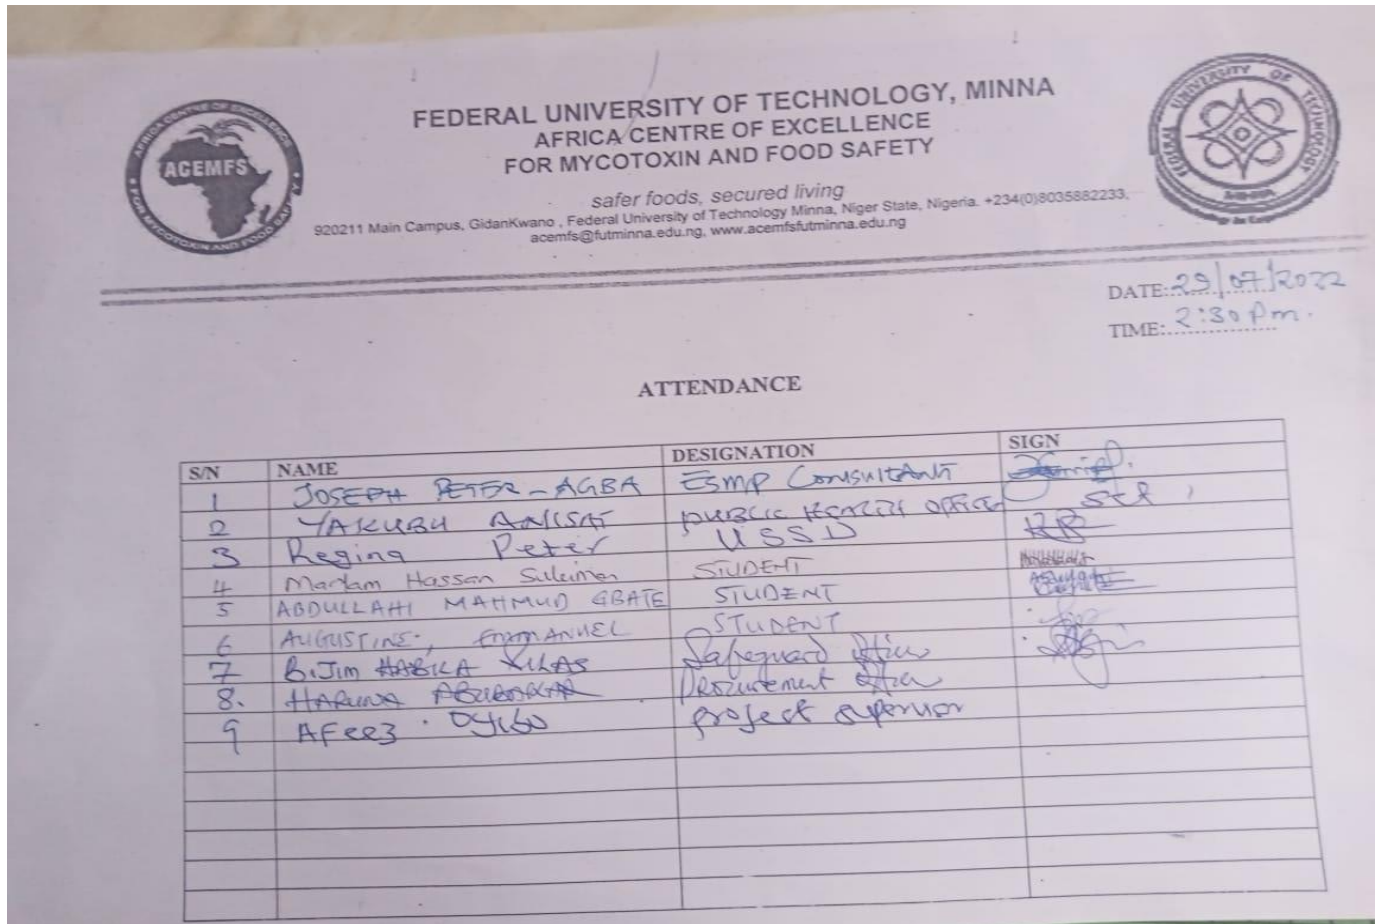 AFRICA CENTRE OF EXCELLENCE
ACEMFS
FOR MYCOTOXIN AND FOOD SAFETY
FEDERAL UNIVERSITY OF TECHNOLOGY, MINNA
AFRICA CENTRE OF EXCELLENCE
FOR MYCOTOXIN AND FOOD SAFETY
safer foods, secured living
920211 Main Campus, GidanKwano , Federal University of Technology Minna, Niger State, Nigeria. +234(0)8035882233,
acemfs@futminna.edu.ng, www.acemfsfutminna.edu.ng
UNIVERSITY OF TECHNOLOGY
DATE: 29/07/2022
TIME: 2:30 Pm.
ATTENDANCE
S/N NAME DESIGNATION SIGN
1 JOSEPH PETER-AGBA ESMP Consultant
2 YAKUBU PUBLIC HEALTH OFFICE
3 Regina Peter USSD
4 Mariam Hassan Suleiman STUDENT
5 ABDULLAHI MAHMUD GBATE STUDENT
6 AUGUSTINE, EMMANUEL STUDENT
7 HABILA Safeguard
8. HARUNA Procurement
9 AFeez project supervisor